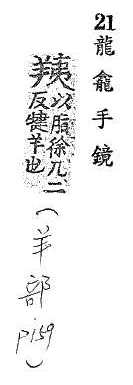 21龍龕手鏡
羠以脂徐兀二
反犍羊也
(羊部
p159)